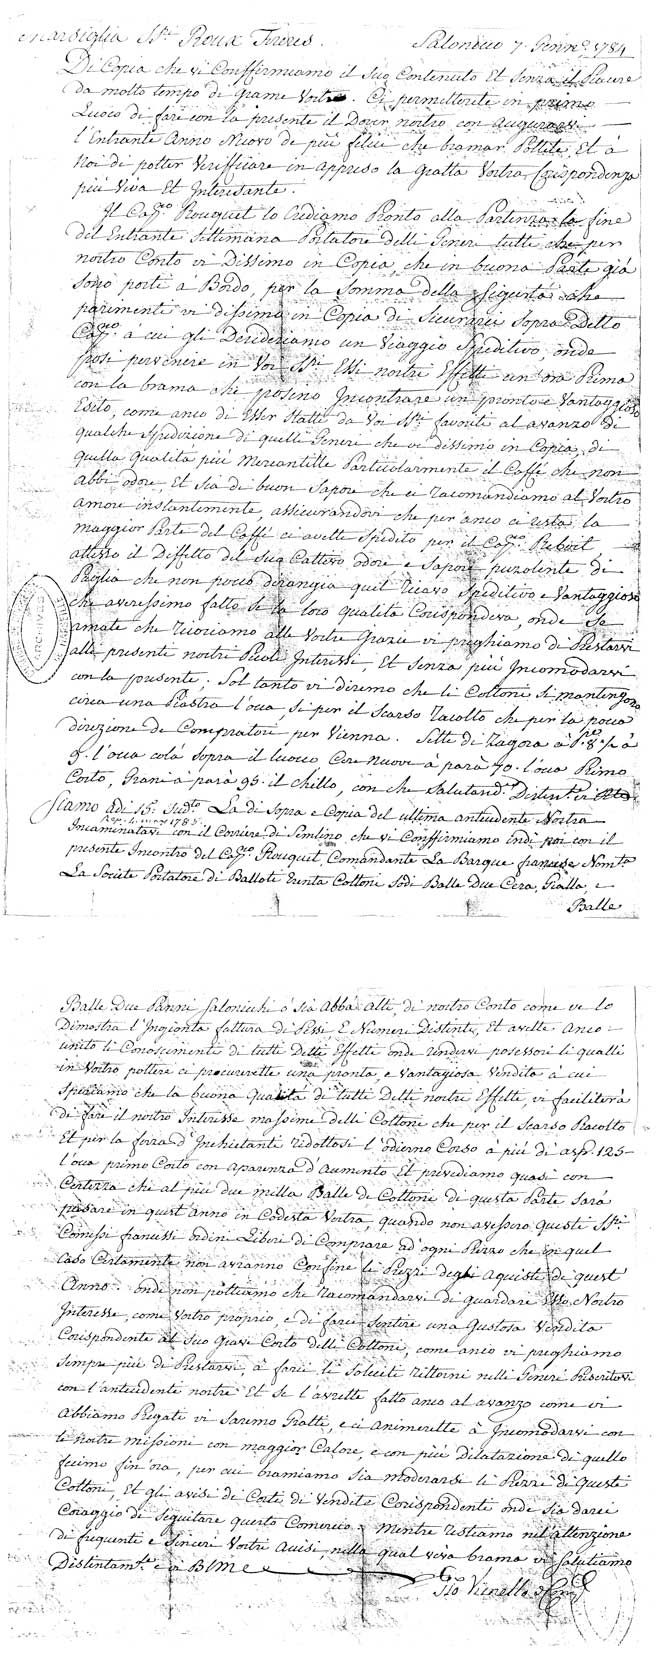 Marsiglia SSri Roux Freres. Salonicco 7. Genn.o 1784
Di Copia che vi Conffirmiamo il suo Contenuto Et senza il Piacere
da molto tempo di Grame Vostre. Ci permetterete in primo
Luoco di fare con la presente il Dover nostro con Augurarvi
l'Entrante Anno Nuovo de più felici che bramar Possite, Et à
Noi di potter Veriffiare in appreso la gratta Vostra Corispondenza
più Viva Et Interesante.
Il Cap.o Rouquet lo Crediamo Pronto alla Partenza la fine
del Entrante Settimana Portatore delli Generi tutti che per
nostro Conto vi Dissimo in Copia, che in buona Parte già
sono posti à Bordo, per la Somma della Sigurtà che
parimente vi dissimo in Copia di sicurarci Sopra Detto
Cap.o à cui gli Desideriamo un Viaggio Speditivo onde
possi pervenire in Voi SSri Essi nostri Effetti un'ora Prima
con la brama che posino Incontrare un pronto e Vantaggioso
Esito, come anco di Esser statti da Voi SSri favoriti al avanzo di
qualche Spedizione di quelli Generi che vi dissimo in Copia, di
quella Qualità più Mercantille Particolarmente il Caffè che non
abbi odore, Et sia di buon Sapore che ci racomandiamo al Vostro
amore instantemente, assicurandovi che per anco ci resta la
maggior Parte del Caffè ci avette Spedito per il Cap.o Reboul,
atteso il Diffetto del suo Cattivo odore e Sapore puzolente di
Paglia che non poco dirangia quel Ricavo Speditivo e Vantaggioso
che averessimo fatto se la loro qualità Corispondeva, onde Se
amate che Ricoriamo alle Vostre Grazie vi preghiamo di Prestarvi
alli presente nostri Picoli Interessi, Et senza più Incomodarvi
con la presente, Sol tanto vi diremo che li Cottoni si mantengono
circa una Piastra l'oca, si per il scarso Racolto che per la poca
direzione de Compratori per Vienna. Sette di Zagora à P. 8 1/2 à
9. l'oca colà sopra il luoco Cere Nuove à parà 70. l'oca Primo
Costo, Grani à parà 95. il chillo, con che Salutand.vi Distint.e vi
Siamo Adi 15. Sud.to La di Sopra e Copia del ultima antecedente Nostra
Incaminatavi con il Coriere di Semlino che vi Conffirmiamo indi poi con il
presente Incontro del Cap.o Rouquet Comandante La Barque francese Nom.ta
La Societe Portatore di Ballote Trenta Cottoni Sodi Balle Due Cera, Gialla, e
Balle
Balle Due Panni Salonichi ò sia Abbà Alti, di nostro Conto come ve lo
Dimostra l'Ingionta fattura di Pessi E Numeri Distinti, Et avette Anco
unito li Conoscimenti di tutti Detti Effetti onde rendervi posessori li qualli
in Vostro pottere ci procurerette una pronta, e Vantagiosa Vendita à cui
Speriamo che la buona Qualità di tutti Detti nostri Effetti, vi faciliterà
di fare il nostro Interesse massime delli Cottoni che per il scarso Racolto
Et per la forza d'Inchietanti ridottosi l'odierno Corso à più di asp. 125
l'oca primo Costo con aparenza d'Aumento Et prevediamo quasi con
Certezza che al più due milla Balle de Cottone di questa Parte sarà
passare in quest'anno in Codesta Vostra, quando non avessero questi SSri
Comessi francesi ordini Liberi di Comprare ad ogni Prezzo che in quel
caso Certamente non avranno Confine li Prezzi degli Aquisti di quest'
Anno. onde non pottiamo che racomandarvi di guardare Esso Nostro
Interesse, come Vostro proprio, e di farci sentire una Gustosa Vendita
Corispondente al suo Grave Costo delli Cottoni, come anco vi preghiamo
sempre più di Prestarvi, à farci li Soleciti rittorni nelli Generi Prescritovi
con l'antecedente nostre Et se l'avrette fatto anco al avanzo come vi
Abbiamo Pregati vi Saremo Gratti, e ci animerette à Incomodarvi con
le nostre missioni con maggior Calore, e con più Dilatazione di quello
fecimo fin'ora, per cui bramiamo sia moderarsi li Prezzi di Questi
Cottoni, Et gli avisi di Costi di Vendite Corispondente onde sia darci
Coraggio di Seguitare questo Comercio. Mentre restiamo nel'attenzione
di frequente e Sinceri Vostri Avisi, nella qual viva brama vi Salutiamo
Distintam.te e vi B L M
Gio Vianello & Comp.